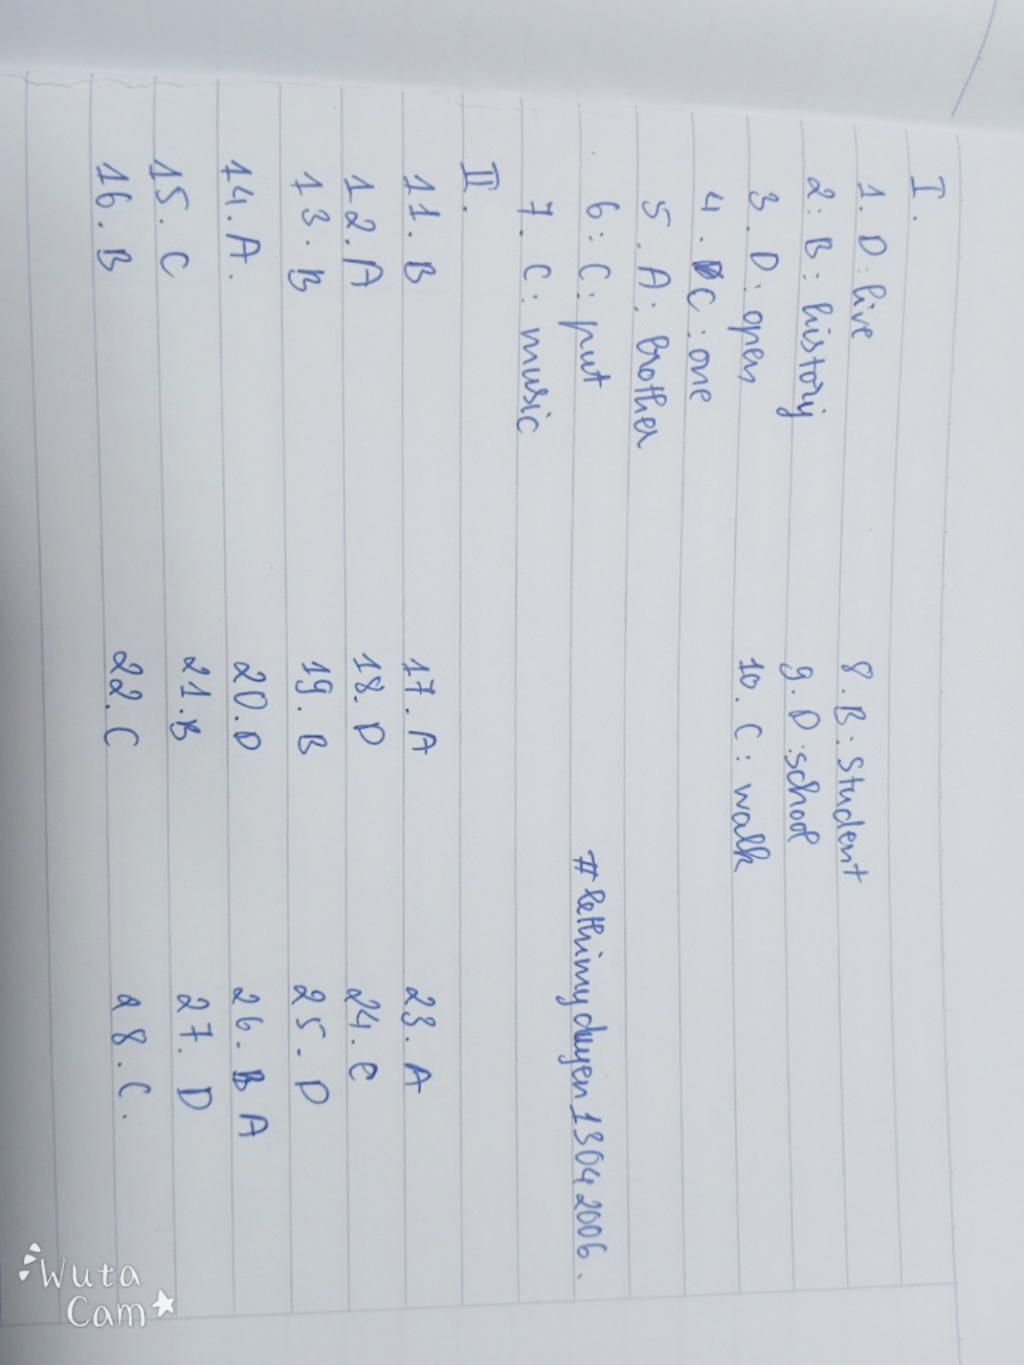 I.
1. D: live
8. B: Student
2: B: history
9. D: school
3. D: open
10. C: walk
4. C: one
5. A: brother
6: C: put
#lethimyduyen13042006.
7. C: music
II.
11. B
17. A
23. A
12. A
18. D
24. C
13. B
19. B
25. D
14. A.
20. D
26. A
15. C
21. B
27. D
16. B
22. C
28. C.
Wuta
Cam